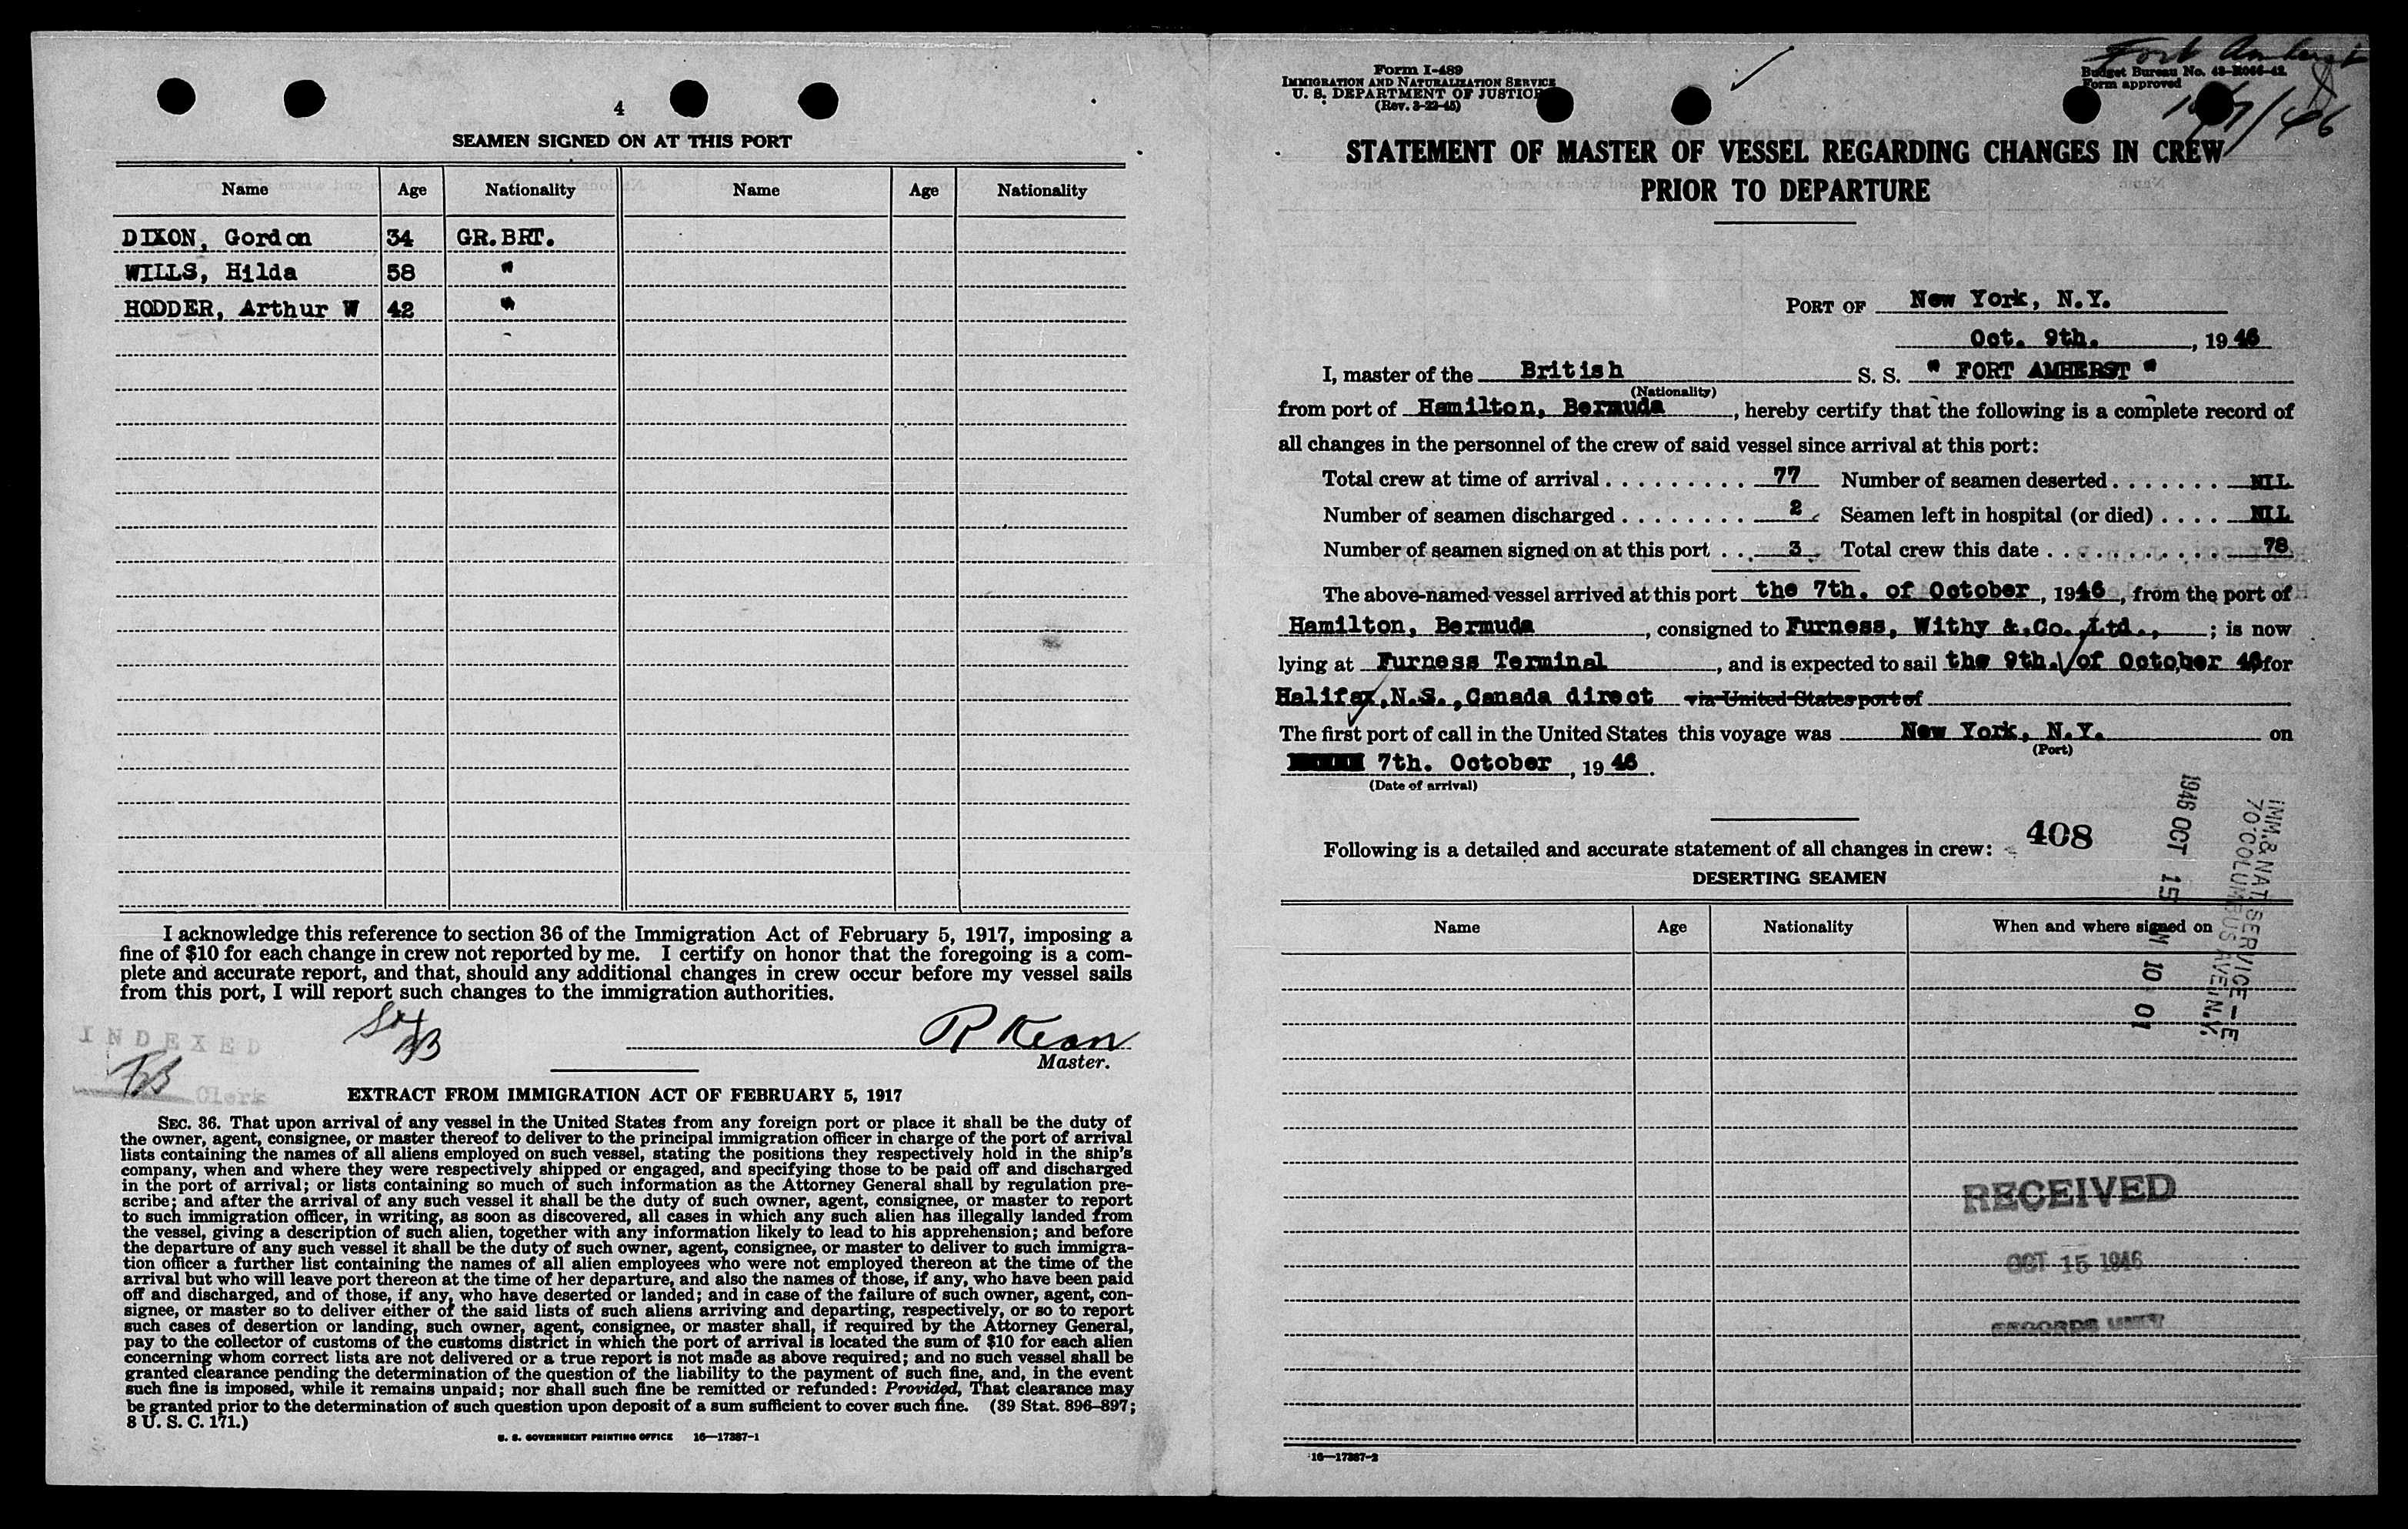 4
SEAMEN SIGNED ON AT THIS PORT
Name Age Nationality Name Age Nationality
DIXON, Gordon 34 GR.BRT.
WILLS, Hilda 58 "
HODDER, Arthur W 42 "
I acknowledge this reference to section 36 of the Immigration Act of February 5, 1917, imposing a
fine of $10 for each change in crew not reported by me. I certify on honor that the foregoing is a com-
plete and accurate report, and that, should any additional changes in crew occur before my vessel sails
from this port, I will report such changes to the immigration authorities.
R Kean
Master.
INDEXED
Clerk
EXTRACT FROM IMMIGRATION ACT OF FEBRUARY 5, 1917
SEC. 36. That upon arrival of any vessel in the United States from any foreign port or place it shall be the duty of
the owner, agent, consignee, or master thereof to deliver to the principal immigration officer in charge of the port of arrival
lists containing the names of all aliens employed on such vessel, stating the positions they respectively hold in the ship's
company, when and where they were respectively shipped or engaged, and specifying those to be paid off and discharged
in the port of arrival; or lists containing so much of such information as the Attorney General shall by regulation pre-
scribe; and after the arrival of any such vessel it shall be the duty of such owner, agent, consignee, or master to report
to such immigration officer, in writing, as soon as discovered, all cases in which any such alien has illegally landed from
the vessel, giving a description of such alien, together with any information likely to lead to his apprehension; and before
the departure of any such vessel it shall be the duty of such owner, agent, consignee, or master to deliver to such immigra-
tion officer a further list containing the names of all alien employees who were not employed thereon at the time of the
arrival but who will leave port thereon at the time of her departure, and also the names of those, if any, who have been paid
off and discharged, and of those, if any, who have deserted or landed; and in case of the failure of such owner, agent, con-
signee, or master so to deliver either of the said lists of such aliens arriving and departing, respectively, or so to report
such cases of desertion or landing, such owner, agent, consignee, or master shall, if required by the Attorney General,
pay to the collector of customs of the customs district in which the port of arrival is located the sum of $10 for each alien
concerning whom correct lists are not delivered or a true report is not made as above required; and no such vessel shall be
granted clearance pending the determination of the question of the liability to the payment of such fine, and, in the event
such fine is imposed, while it remains unpaid; nor shall such fine be remitted or refunded: Provided, That clearance may
be granted prior to the determination of such question upon deposit of a sum sufficient to cover such fine. (39 Stat. 896–897;
8 U. S. C. 171.)
U. S. GOVERNMENT PRINTING OFFICE 16—17387-1
Fort Amherst
Form I-489
IMMIGRATION AND NATURALIZATION SERVICE
U. S. DEPARTMENT OF JUSTICE
(Rev. 3-22-45)
Budget Bureau No. 43-R066-42
Form approved
10/7/46
STATEMENT OF MASTER OF VESSEL REGARDING CHANGES IN CREW
PRIOR TO DEPARTURE
PORT OF New York, N.Y.
Oct. 9th. , 19 46
I, master of the British S. S. " FORT AMHERST "
(Nationality)
from port of Hamilton, Bermuda , hereby certify that the following is a complete record of
all changes in the personnel of the crew of said vessel since arrival at this port:
Total crew at time of arrival . . . . . . . . . . 77 Number of seamen deserted . . . . . . . NIL
Number of seamen discharged . . . . . . . . 2 Seamen left in hospital (or died) . . . . NIL
Number of seamen signed on at this port . . . 3 Total crew this date . . . . . . . . . . . 78
The above-named vessel arrived at this port the 7th. of October , 1946 , from the port of
Hamilton, Bermuda , consigned to Furness, Withy &.Co.,Ltd., ; is now
lying at Furness Terminal , and is expected to sail the 9th. of October 46 for
Halifax,N.S.,Canada direct via United States port of
The first port of call in the United States this voyage was New York, N.Y. on
(Port)
7th. October , 19 46 .
(Date of arrival)
Following is a detailed and accurate statement of all changes in crew: 408
DESERTING SEAMEN
Name Age Nationality When and where signed on
IMM. & NAT. SERVICE – E
70 COLUMBUS AVE. N.Y.
1946 OCT 15 10 01
RECEIVED
OCT 15 1946
RECORDS UNIT
16—17387-2